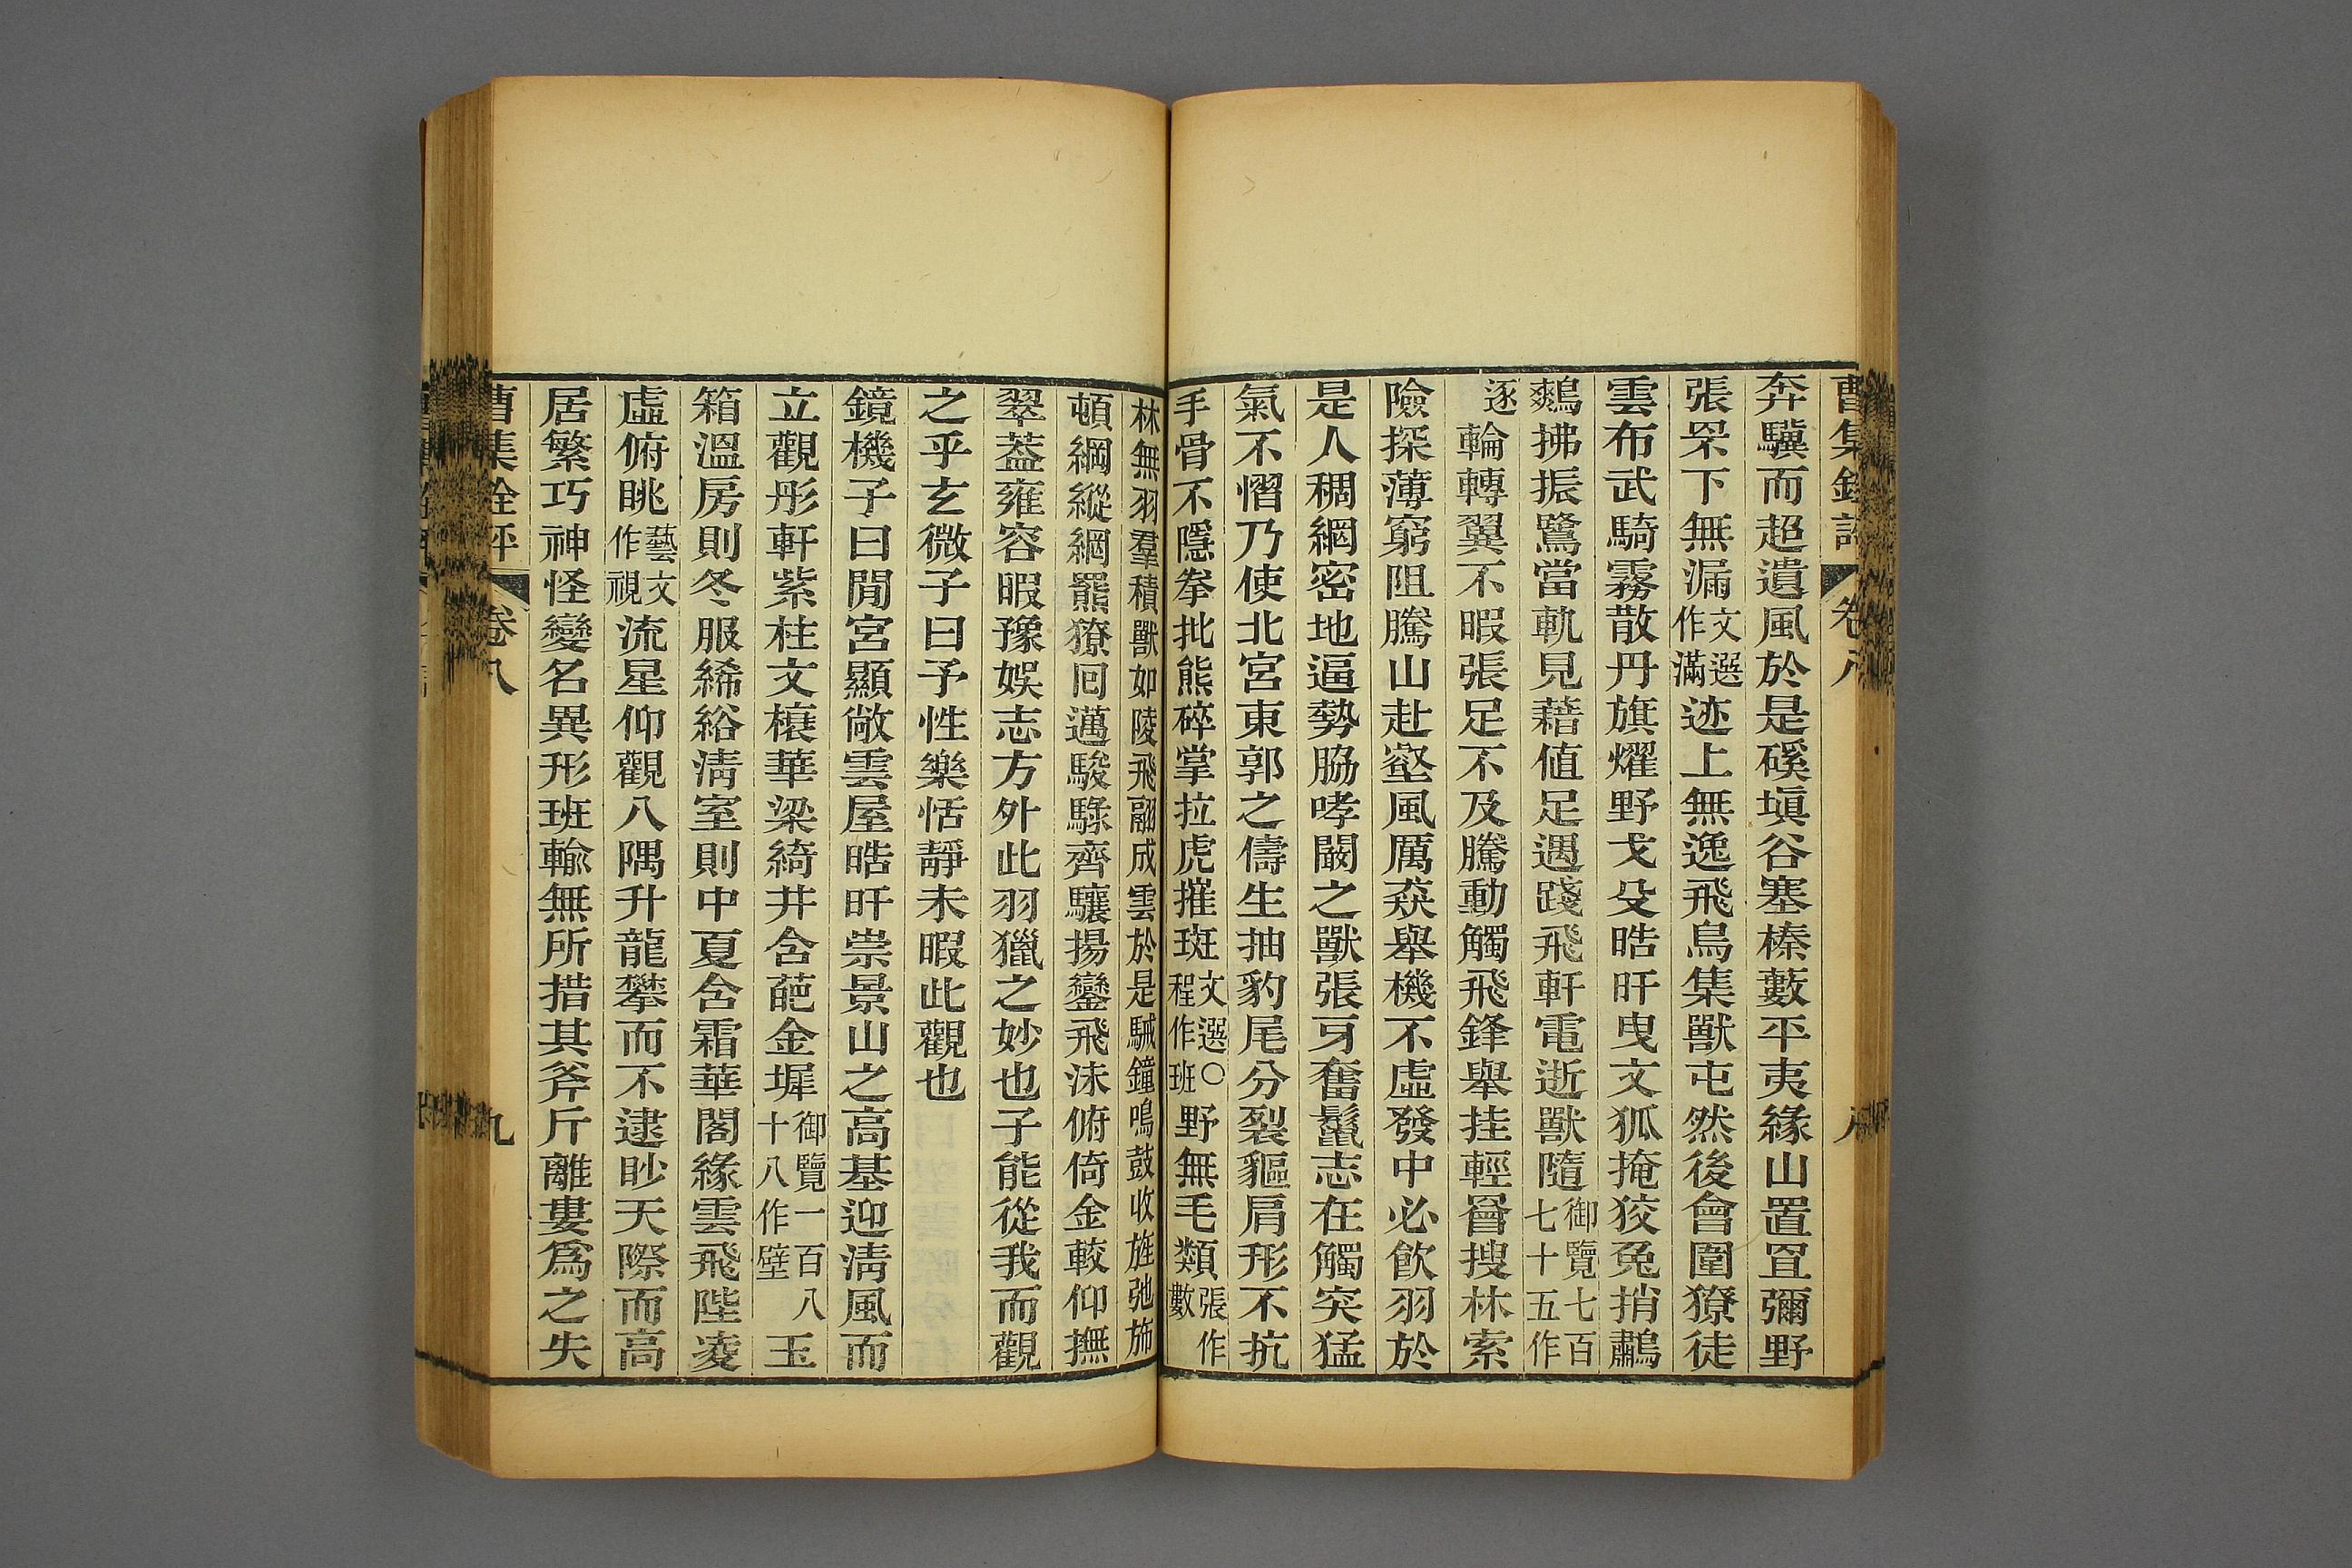 曹集銓評 卷八 八
奔驥而超遺風於是磎塡谷塞榛藪平夷緣山置罝彌野
張罘下無漏文選作滿迹上無逸飛鳥集獸屯然後會圍獠徒
雲布武騎霧散丹旗燿野戈殳晧旰曳文狐掩狡兔捎鸘
鷞拂振鷺當軌見藉値足遇踐飛軒電逝獸隨御覽七百七十五作
逐輪轉翼不暇張足不及騰動觸飛鋒舉挂輕罾搜林索
險探薄窮阻騰山赴壑風厲猋舉機不虛發中必飮羽於
是人稠網密地逼勢脇哮闞之獸張牙奮鬣志在觸突猛
氣不慴乃使北宮東郭之儔生抽豹尾分裂貙肩形不抗
手骨不隱拳批熊碎掌拉虎摧斑文選○程作班野無毛類張作數
林無羽羣積獸如陵飛翮成雲於是駴鐘鳴鼓收旌弛斾
頓綱縱網羆獠囘邁駿騄齊驤揚鑾飛沫俯倚金較仰撫
翠葢雍容暇豫娛志方外此羽獵之妙也子能從我而觀
之乎玄微子曰予性樂恬靜未暇此觀也
鏡機子曰閒宮顯敞雲屋晧旰崇景山之高基迎淸風而
立觀彤軒紫柱文榱華梁綺井含葩金墀御覽一百八十八作壁玉
箱溫房則冬服絺綌淸室則中夏含霜華閣緣雲飛陛凌
虛俯眺藝文作視流星仰觀八隅升龍攀而不逮眇天際而高
居繁巧神怪變名異形班輸無所措其斧斤離婁爲之失
曹集銓評 卷八 九